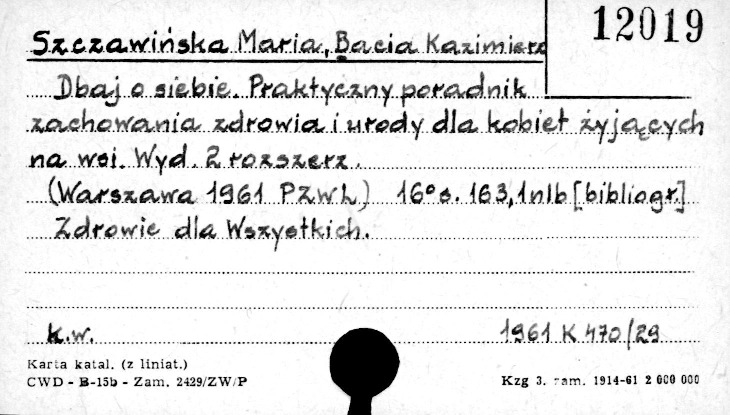 12019
Szczawińska Maria, Bacia Kazimierz
Dbaj o siebie. Praktyczny poradnik
zachowania zdrowia i urody dla kobiet żyjących
na wsi. Wyd. 2 rozszerz.
(Warszawa 1961 PZWL) 16° s. 163, 1 nlb [bibliogr.]
Zdrowie dla Wszystkich.
k.w. 1961 K 470/29
Karta katal. (z liniat.)
CWD - B-15b - Zam. 2429/ZW/P Kzg 3. zam. 1914-61 2 000 000